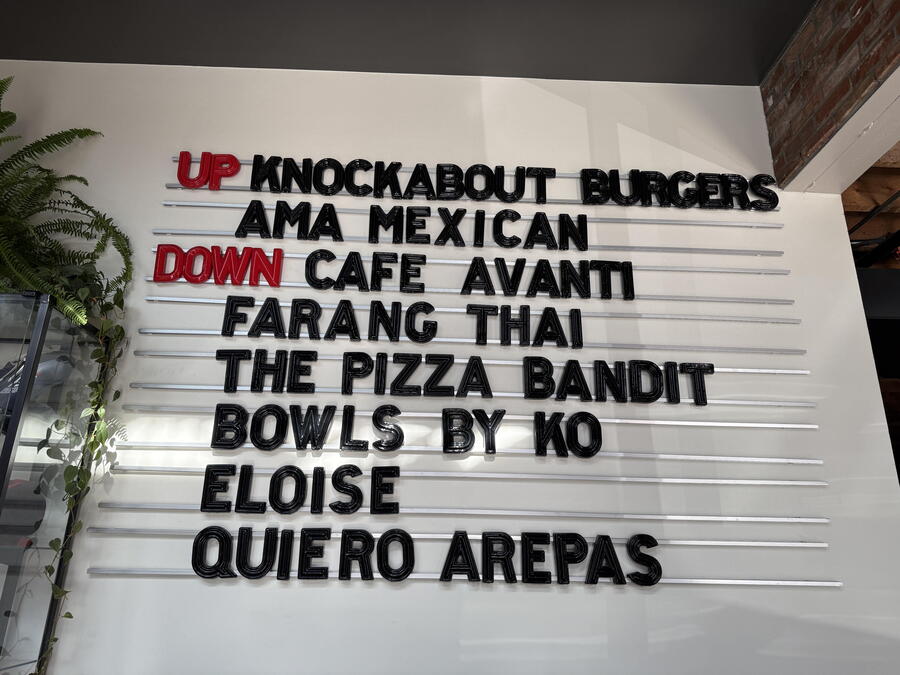 UP KNOCKABOUT BURGERS
AMA MEXICAN
DOWN CAFE AVANTI
FARANG THAI
THE PIZZA BANDIT
BOWLS BY KO
ELOISE
QUIERO AREPAS